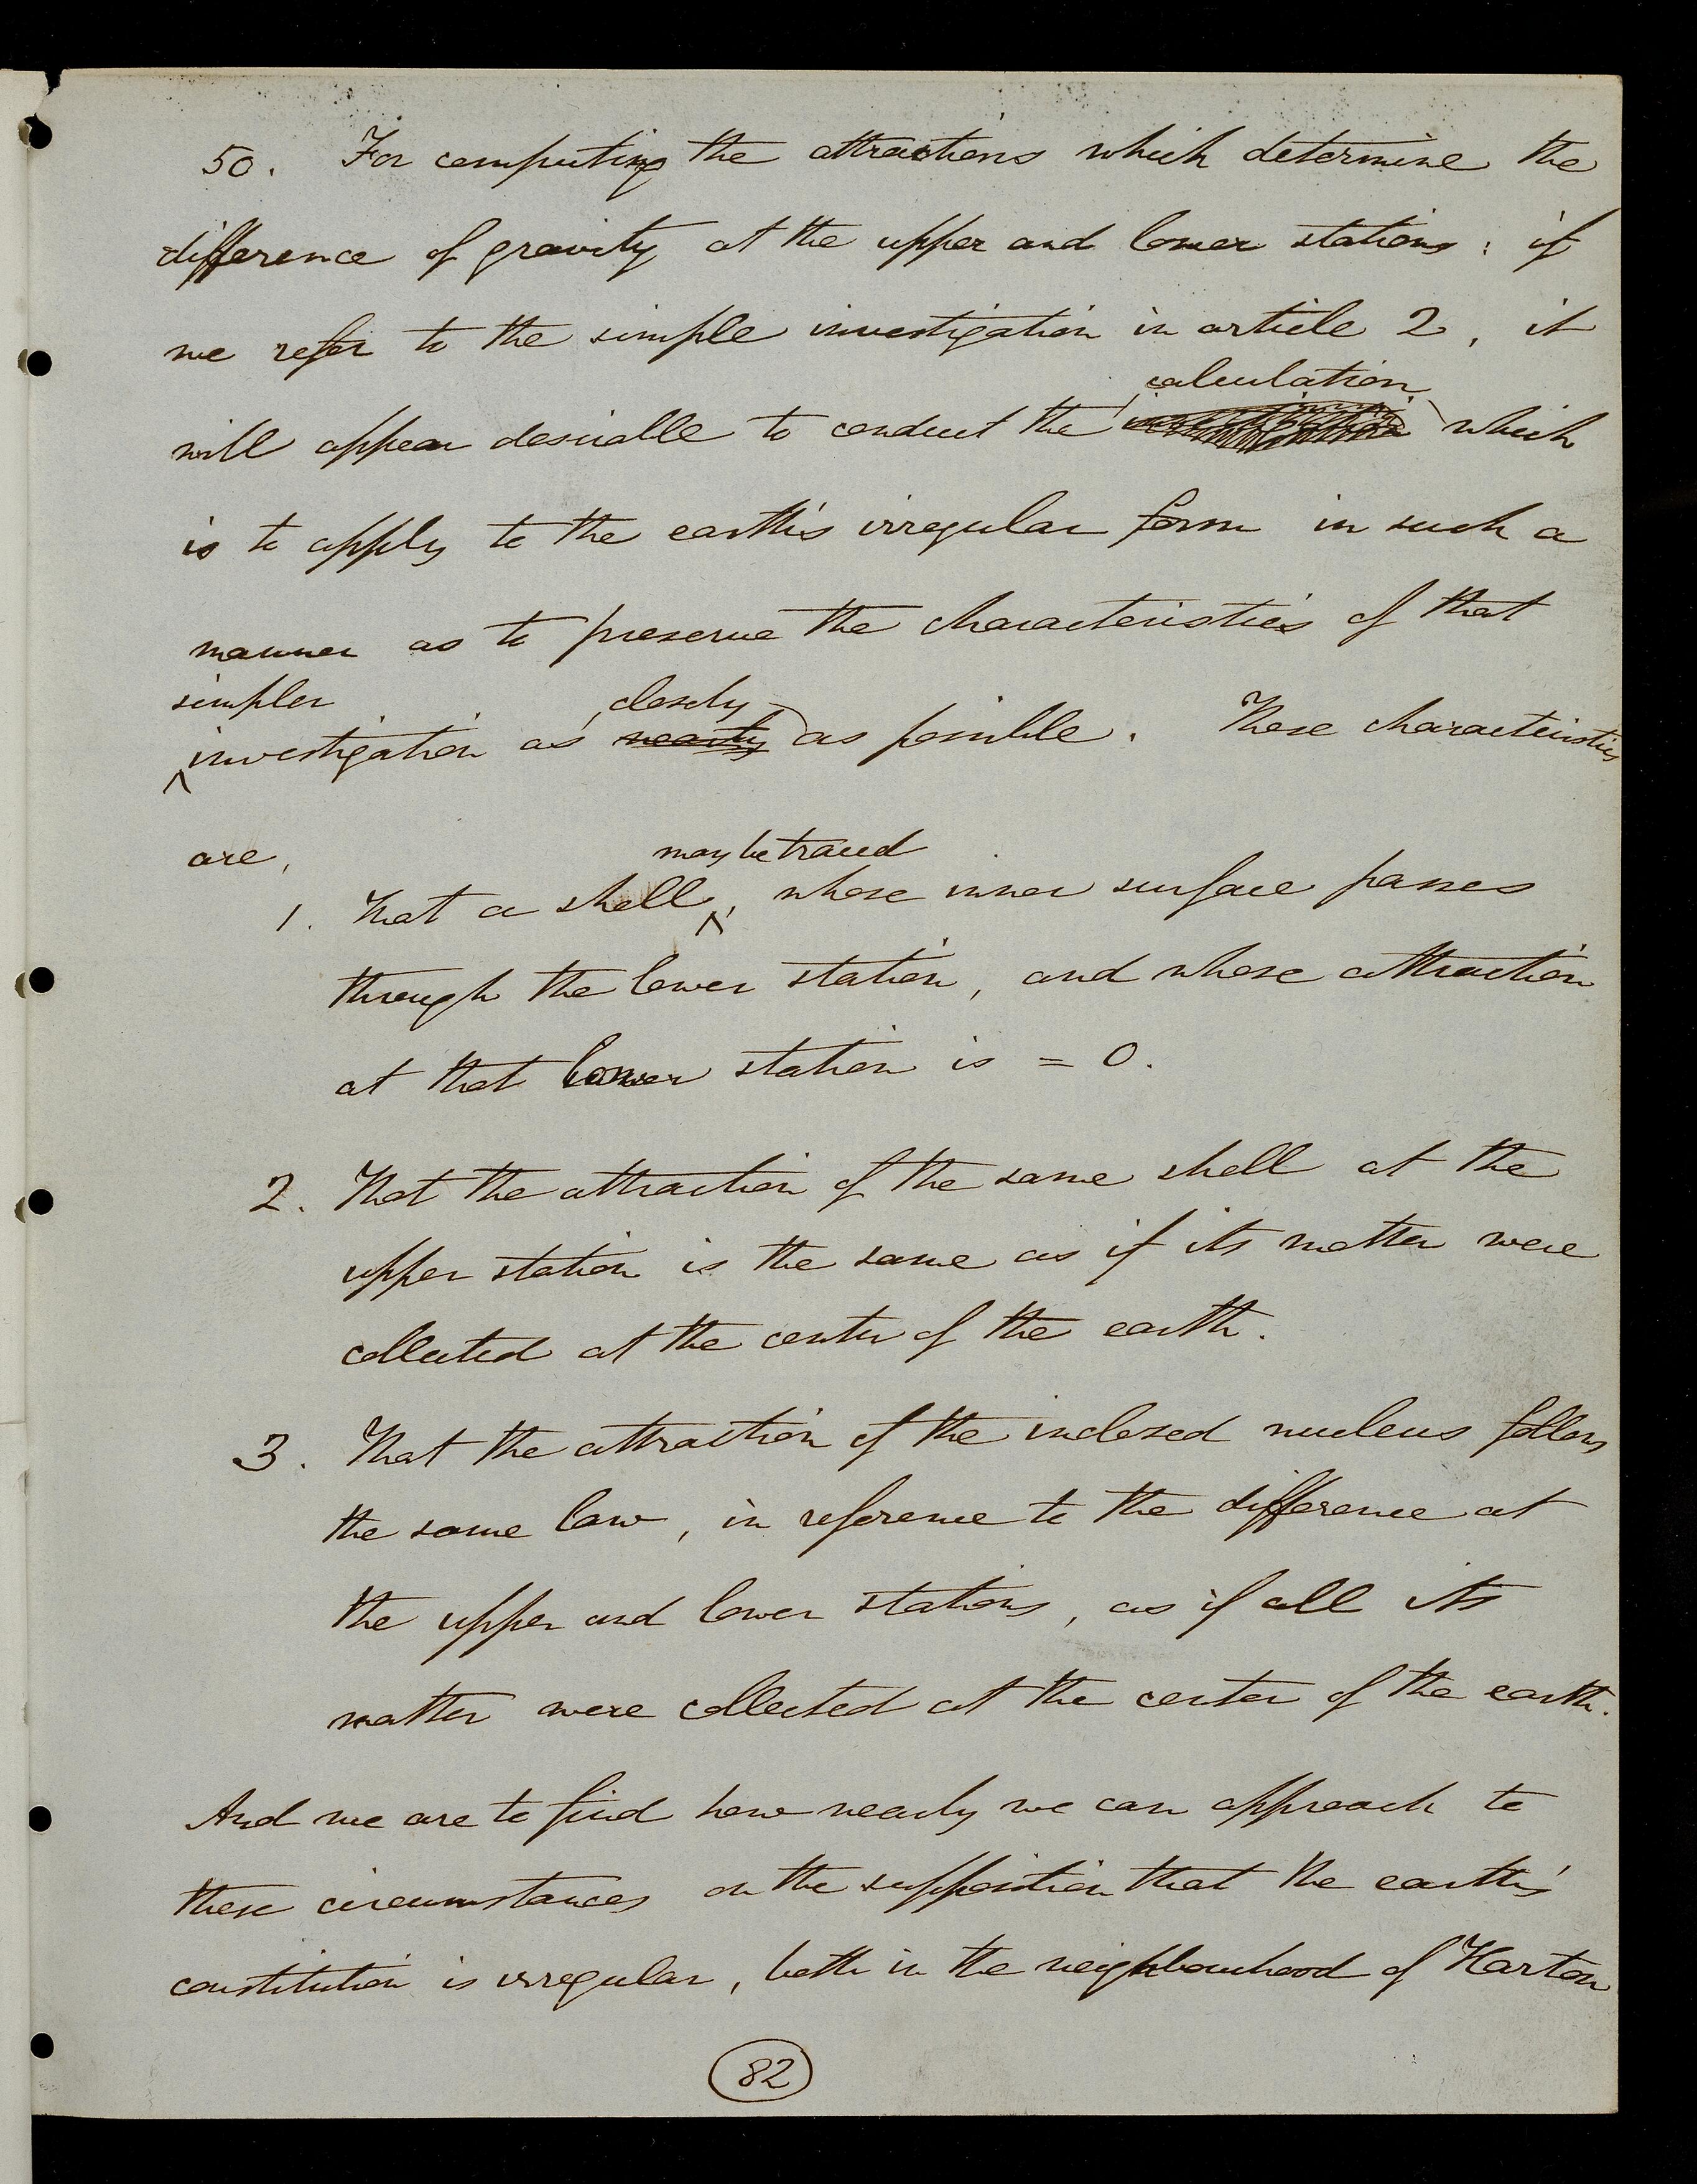 50. For computing the attractions which determine the
difference of gravity at the upper and lower stations: if
we refer to the simple investigation in article 2, it
calculation
will appear desirable to conduct the which
is to apply to the earth's irregular form in such a
manner as to preserve the characteristics of that
simpler closely
investigation as nearly as possible. These characteristics
are,
may be traced
1. That a shell, whose inner surface passes
through the lower station, and whose attraction
at that lower station is = 0.
2. That the attraction of the same shell at the
upper station is the same as if its matter were
collected at the center of the earth.
3. That the attraction of the inclosed nucleus follows
the same law, in reference to the difference at
the upper and lower stations, as if all its
matter were collected at the center of the earth.
And we are to find how nearly we can approach to
these circumstances on the supposition that the earth's
constitution is irregular, both in the neighbourhood of Harton
82